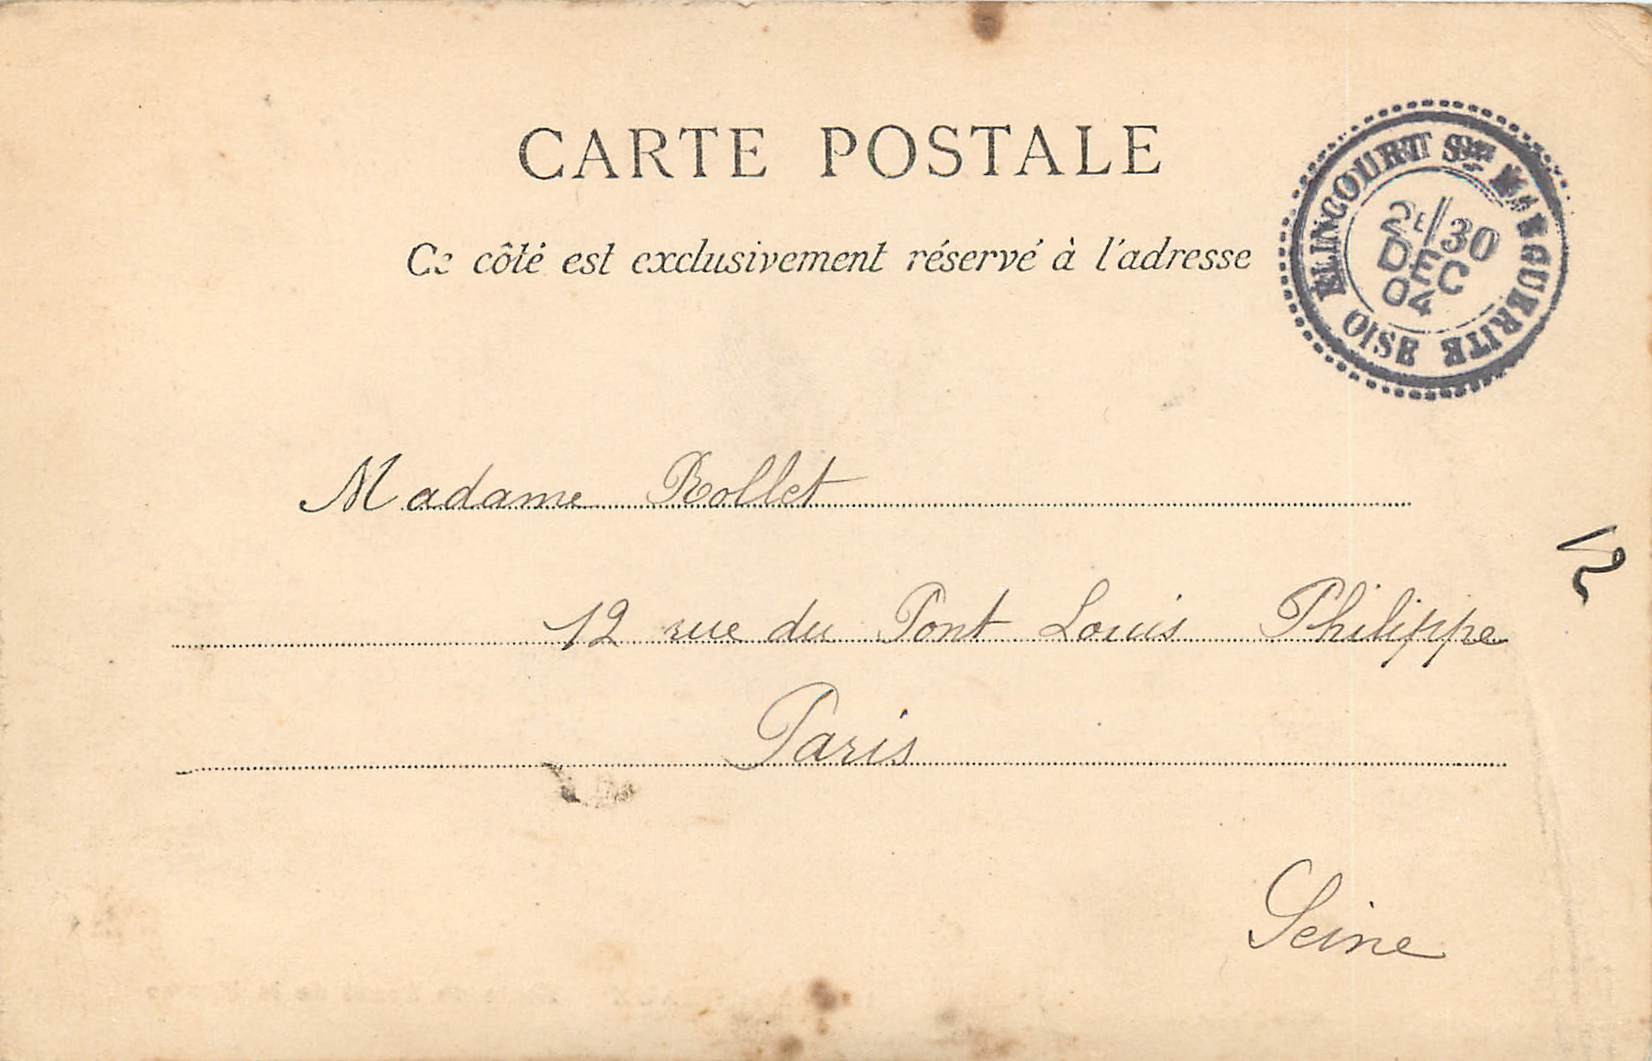 CARTE POSTALE
Ce côté est exclusivement réservé à l'adresse
ÉLINCOURT STE MARGUERITE
2E/30
DEC
04
OISE
Madame Rollet
12 rue du Pont Louis Philippe
Paris
Seine